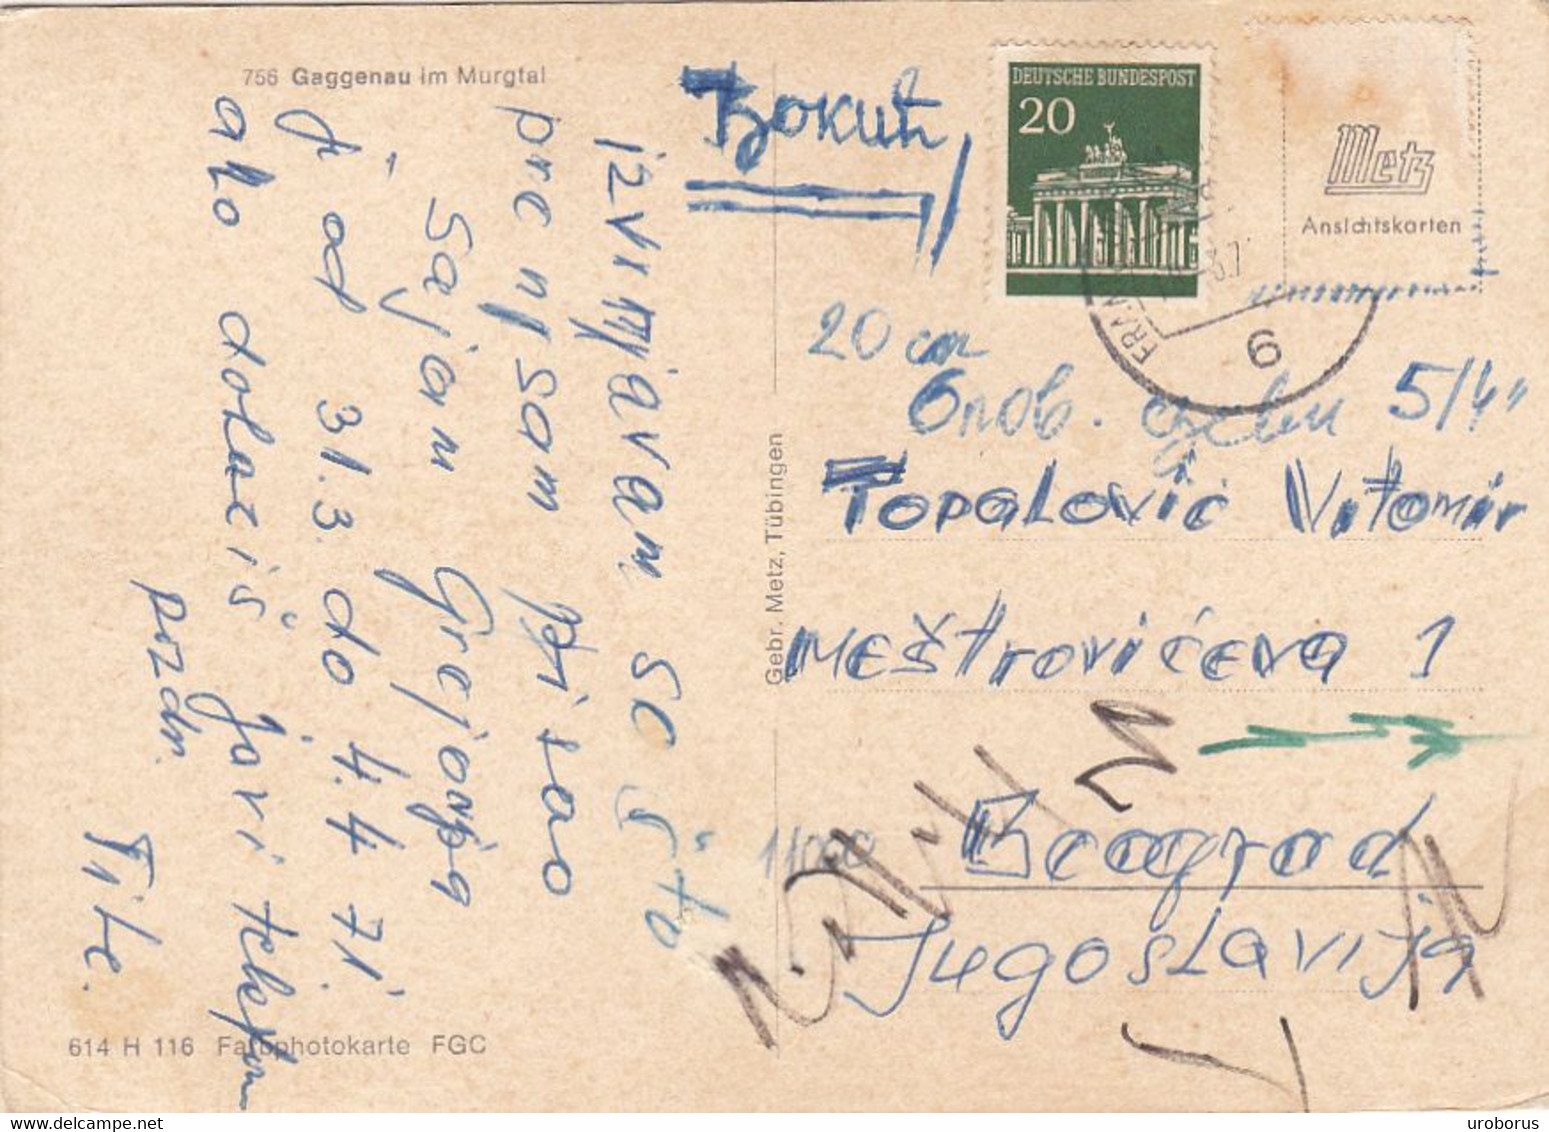 756 Gaggenau im Murgtal
izvinjavam se što
pre nisam pisao
Sajam Grejanja
je od 31.3. do 4.4.71.
ako dolaziš javi telefon
pozdr.
Tile.
614 H 116 Farbphotokarte FGC
Gebr. Metz, Tübingen
Ђокић
DEUTSCHE BUNDESPOST
20
Metz
Ansichtskarten
6
20 cm
5/4"
Topalović Vitomir
Meštrovićeva 1
11000
Beograd
Jugoslavija
uroborus
delcampe.net